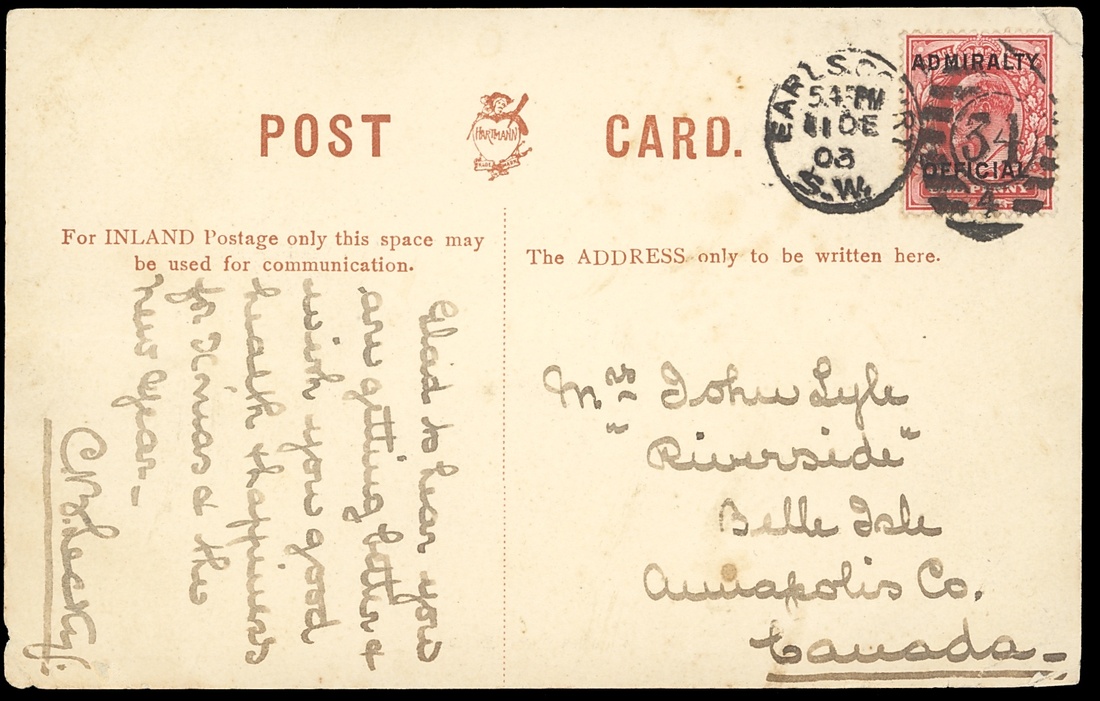 POST CARD.
HARTMANN
TRADE MARK
EARLS COURT
5.45 PM
11 DE
03
S.W.
ADMIRALTY
OFFICIAL
34
4
ONE PENNY
For INLAND Postage only this space may
be used for communication.
The ADDRESS only to be written here.
Glad to hear you
are getting better &
wish you good
health & happiness
for Xmas & the
New Year –
Mrs John Lyle
"Riverside"
Belle Isle
Annapolis Co.
Canada –